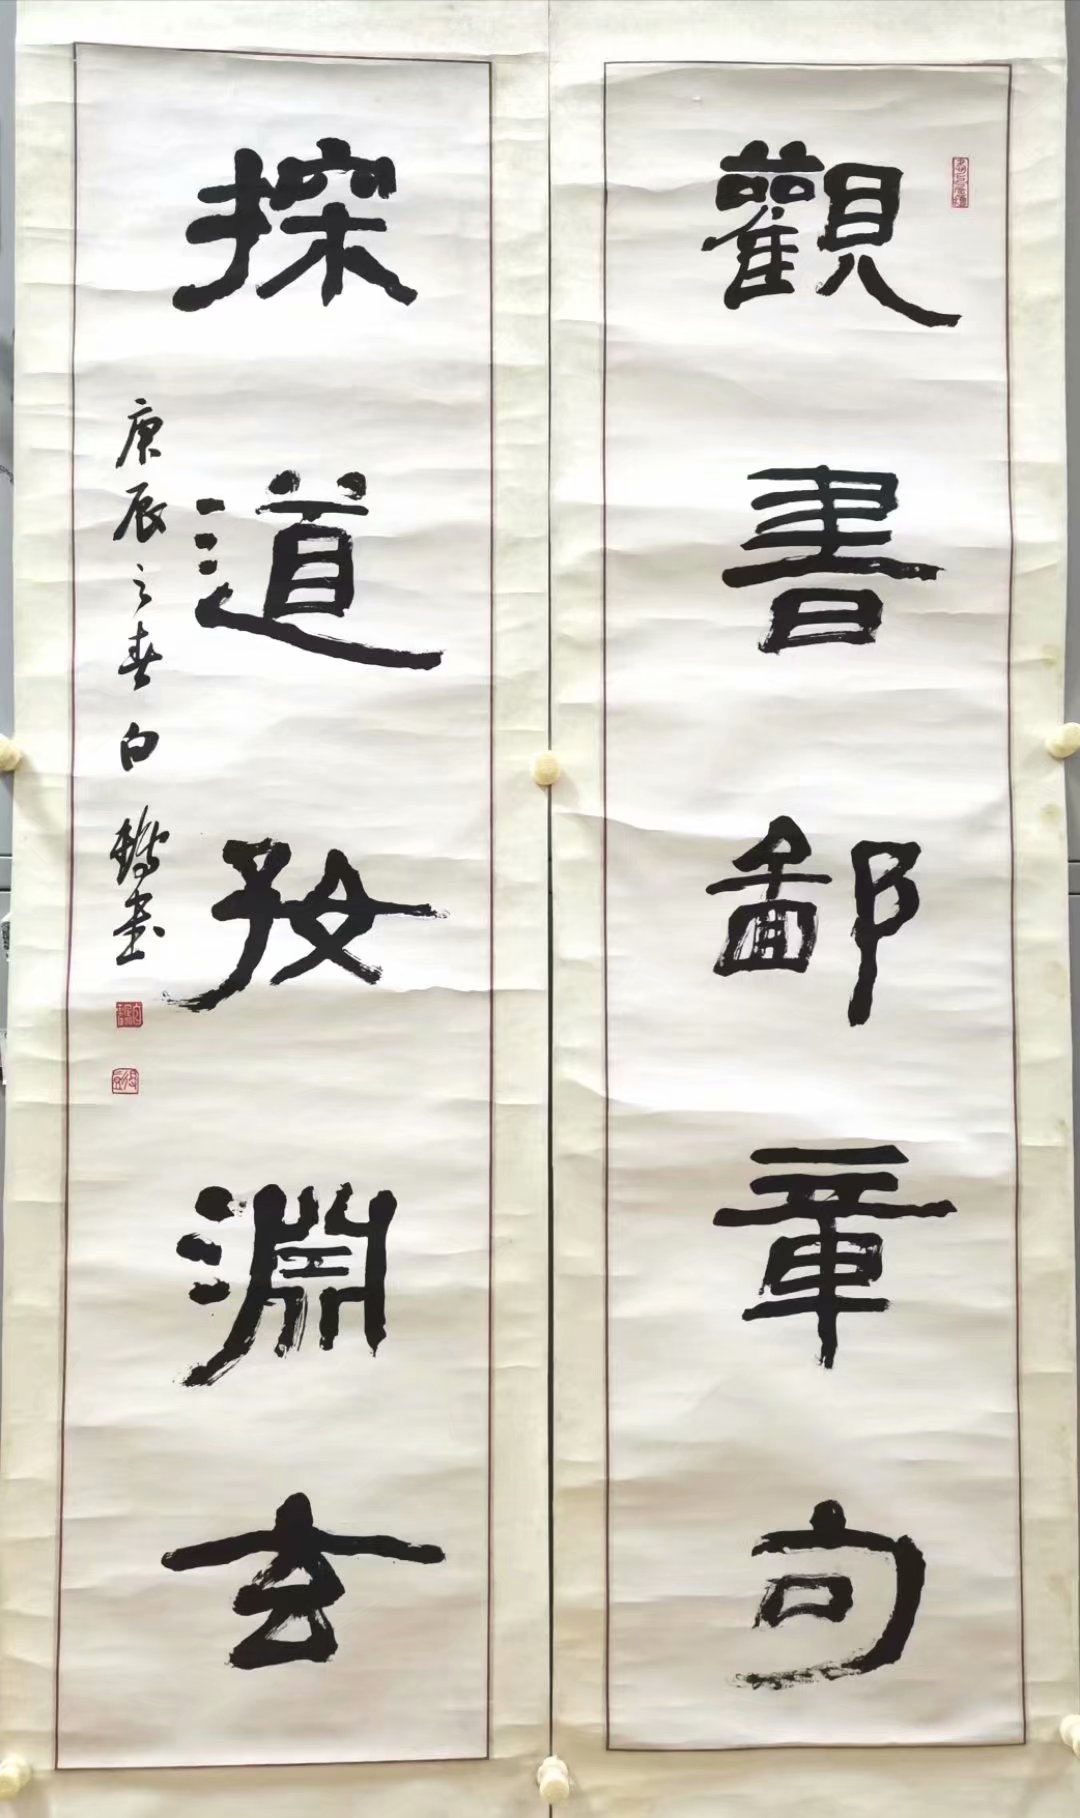 觀書鄙章句
探道好淵玄
庚辰之春白鶴書